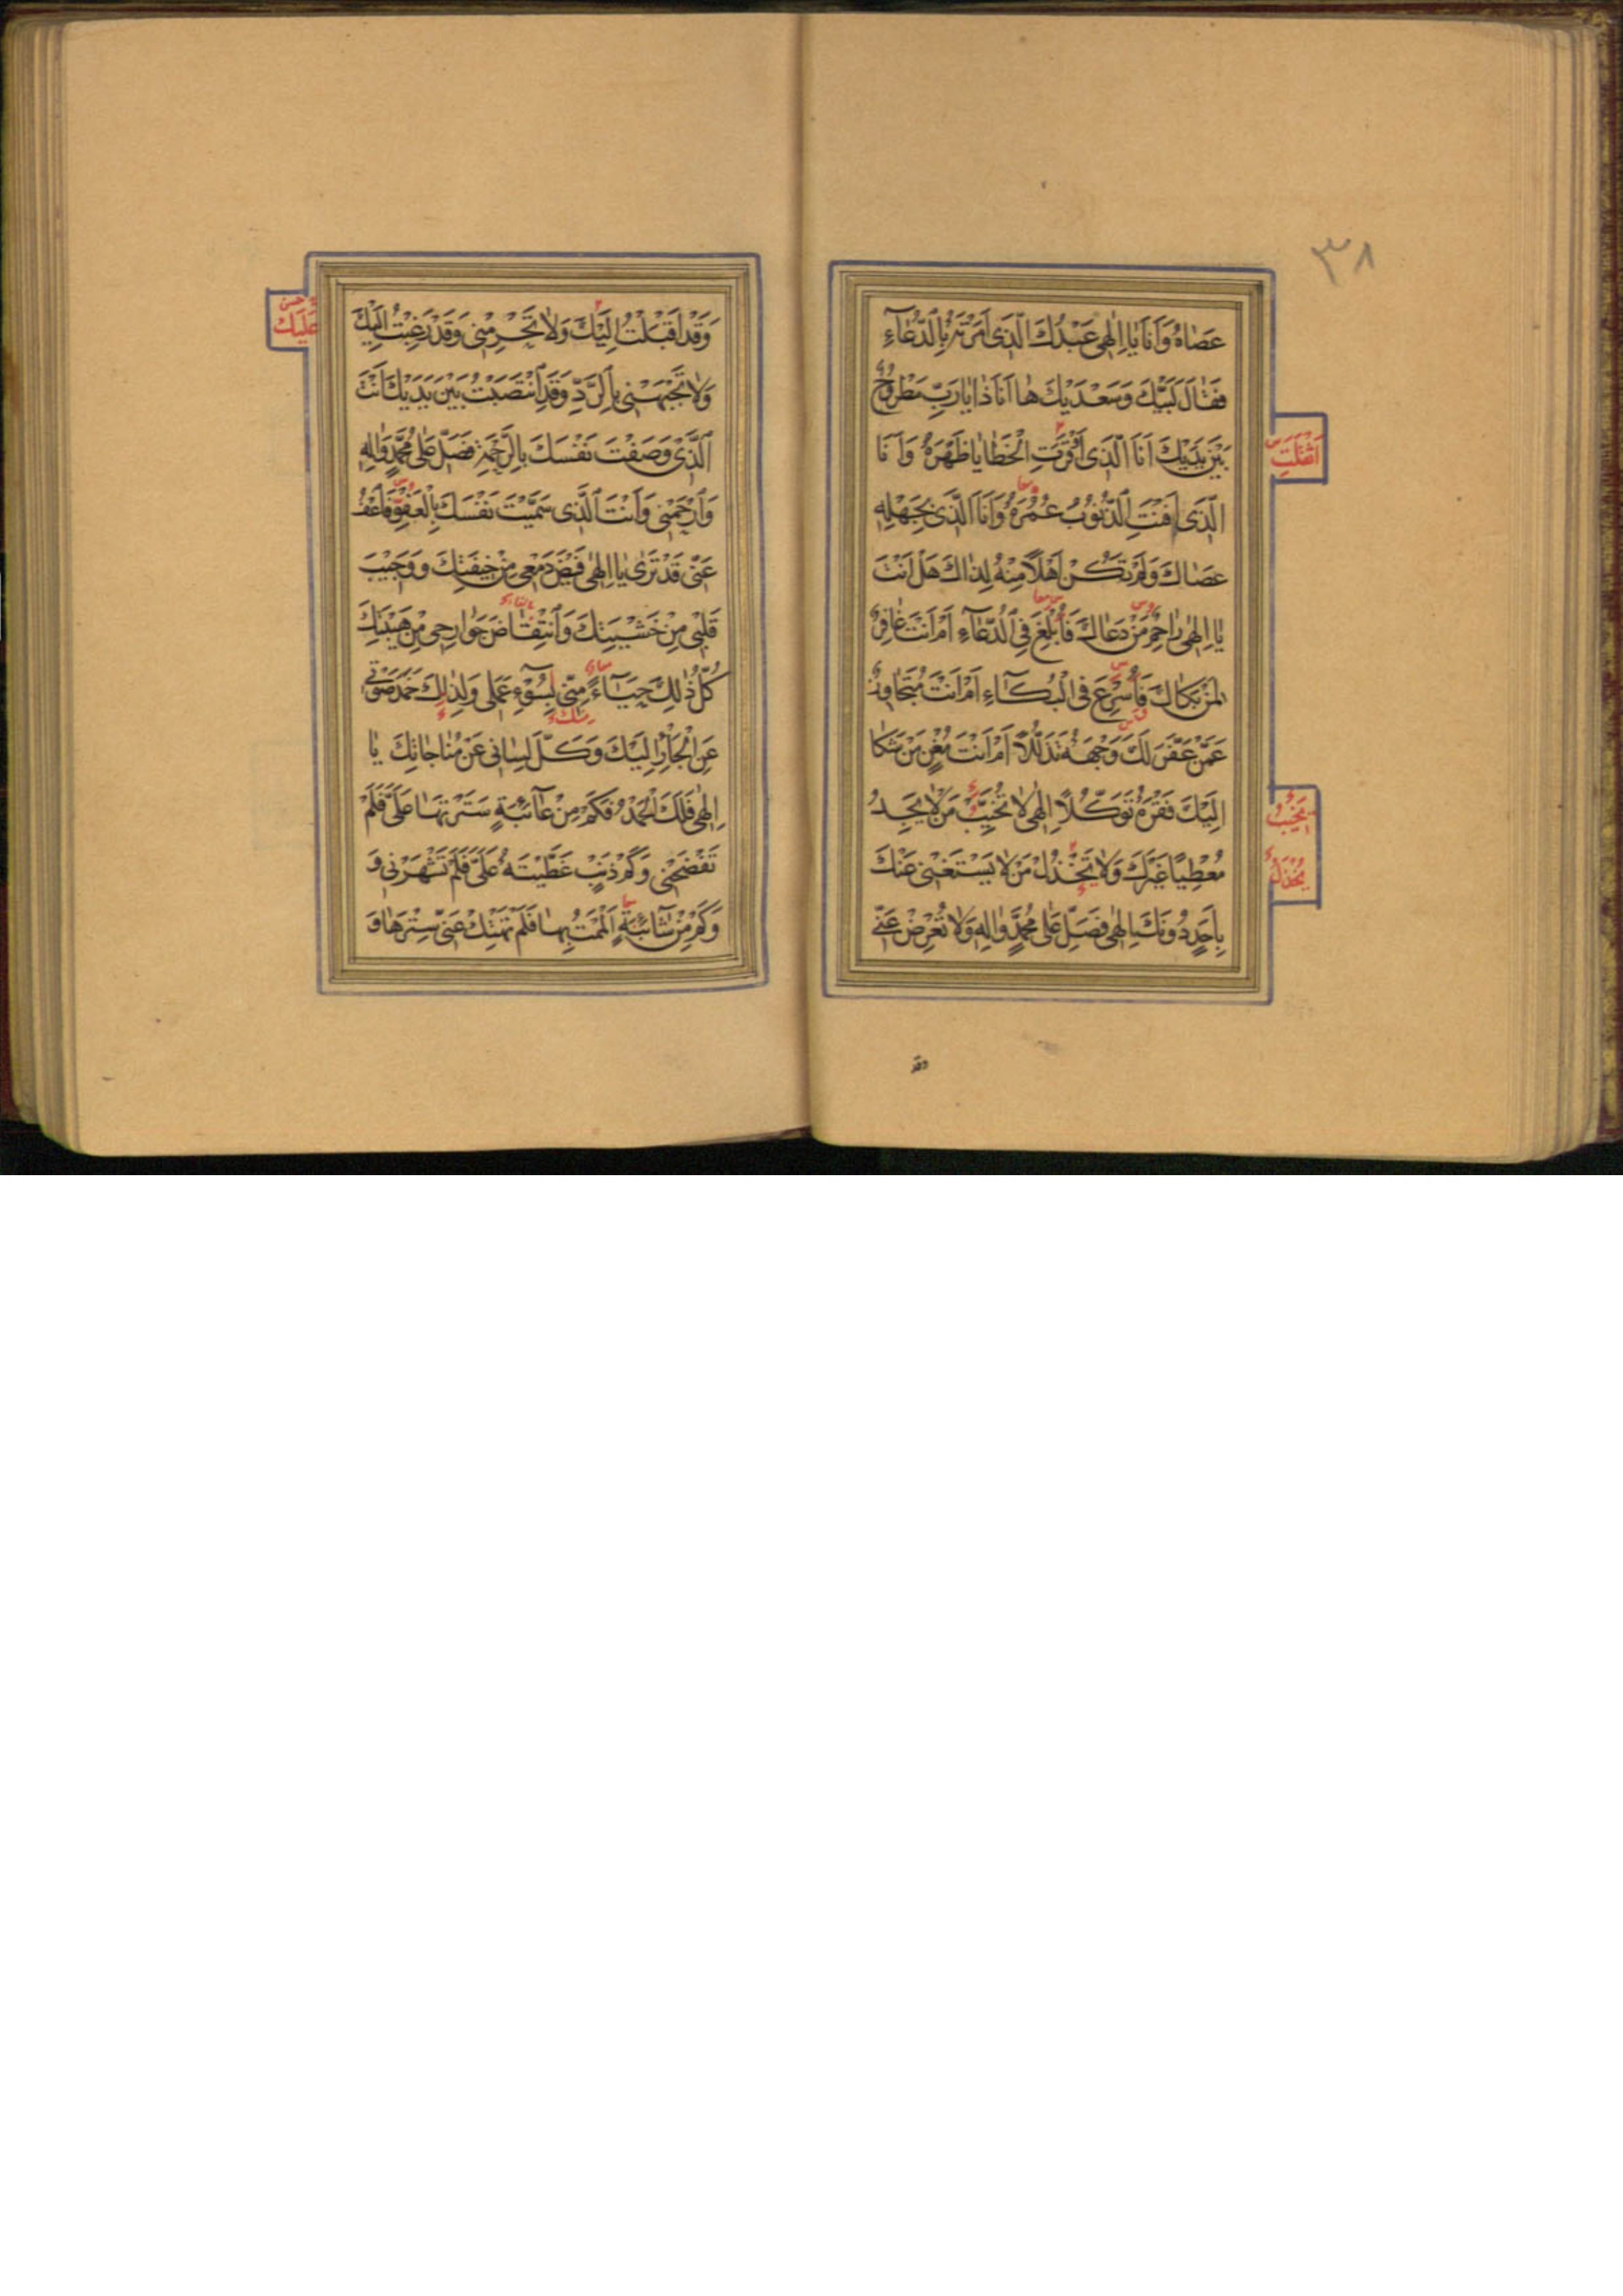 ٣٨
عَصَاهُ وَأَنَا يَا إِلٰهِي عَبْدُكَ الَّذِي أَمَرْتَهُ بِالدُّعَاءِ
فَقَالَ لَبَّيْكَ وَسَعْدَيْكَ هَا أَنَا ذَا يَا رَبِّ مَطْرُوحٌ
بَيْنَ يَدَيْكَ أَنَا الَّذِي أَوْقَرَتِ الْخَطَايَا ظَهْرَهُ وَأَنَا
أَثْقَلَتِ
الَّذِي أَفْنَتِ الذُّنُوبُ عُمُرَهُ وَأَنَا الَّذِي بِجَهْلِهِ
عَصَاكَ وَلَمْ تَكُنْ أَهْلًا مِنْهُ لِذَاكَ هَلْ أَنْتَ
يَا إِلٰهِي رَاحِمٌ مَنْ دَعَاكَ فَأُبْلِغَ فِي الدُّعَاءِ أَمْ أَنْتَ غَافِرٌ
لِمَنْ بَكَاكَ فَأُسْرِعَ فِي الْبُكَاءِ أَمْ أَنْتَ مُتَجَاوِزٌ
عَمَّنْ عَفَّرَ لَكَ وَجْهَهُ تَذَلُّلًا أَمْ أَنْتَ مُغْنٍ مَنْ شَكَا
إِلَيْكَ فَقْرَهُ تَوَكُّلًا إِلٰهِي لَا تُخَيِّبْ مَنْ لَا يَجِدُ
يَخِيبُ
مُعْطِيًا غَيْرَكَ وَلَا تَخْذُلْ مَنْ لَا يَسْتَغْنِي عَنْكَ
يُخْذَلُ
بِأَحَدٍ دُونَكَ إِلٰهِي فَصَلِّ عَلَى مُحَمَّدٍ وَآلِهِ وَلَا تُعْرِضْ عَنِّي
وقد
وَقَدْ أَقْبَلْتُ إِلَيْكَ وَلَا تَحْرِمْنِي وَقَدْ رَغِبْتُ إِلَيْكَ
عَلَيْكَ
وَلَا تَجْبَهْنِي بِالرَّدِّ وَقَدِ انْتَصَبْتُ بَيْنَ يَدَيْكَ أَنْتَ
الَّذِي وَصَفْتَ نَفْسَكَ بِالرَّحْمَةِ فَصَلِّ عَلَى مُحَمَّدٍ وَآلِهِ
وَارْحَمْنِي وَأَنْتَ الَّذِي سَمَّيْتَ نَفْسَكَ بِالْعَفْوِ فَاعْفُ
عَنِّي قَدْ تَرَى يَا إِلٰهِي فَيْضَ دَمْعِي مِنْ خِيفَتِكَ وَوَجِيبَ
قَلْبِي مِنْ خَشْيَتِكَ وَانْتِقَاضَ جَوَارِحِي مِنْ هَيْبَتِكَ
كُلُّ ذٰلِكَ حَيَاءً مِنِّي لِسُوءِ عَمَلِي وَلِذٰلِكَ خَمَدَ صَوْتِي
عَنِ الْجَأْرِ إِلَيْكَ وَكَلَّ لِسَانِي عَنْ مُنَاجَاتِكَ يَا
إِلٰهِي فَلَكَ الْحَمْدُ فَكَمْ مِنْ عَائِبَةٍ سَتَرْتَهَا عَلَيَّ فَلَمْ
تَفْضَحْنِي وَكَمْ ذَنْبٍ غَطَّيْتَهُ عَلَيَّ فَلَمْ تَشْهَرْنِي وَ
وَكَمْ مِنْ شَائِبَةٍ أَلْمَمْتُ بِهَا فَلَمْ تَهْتِكْ عَنِّي سِتْرَهَا وَ